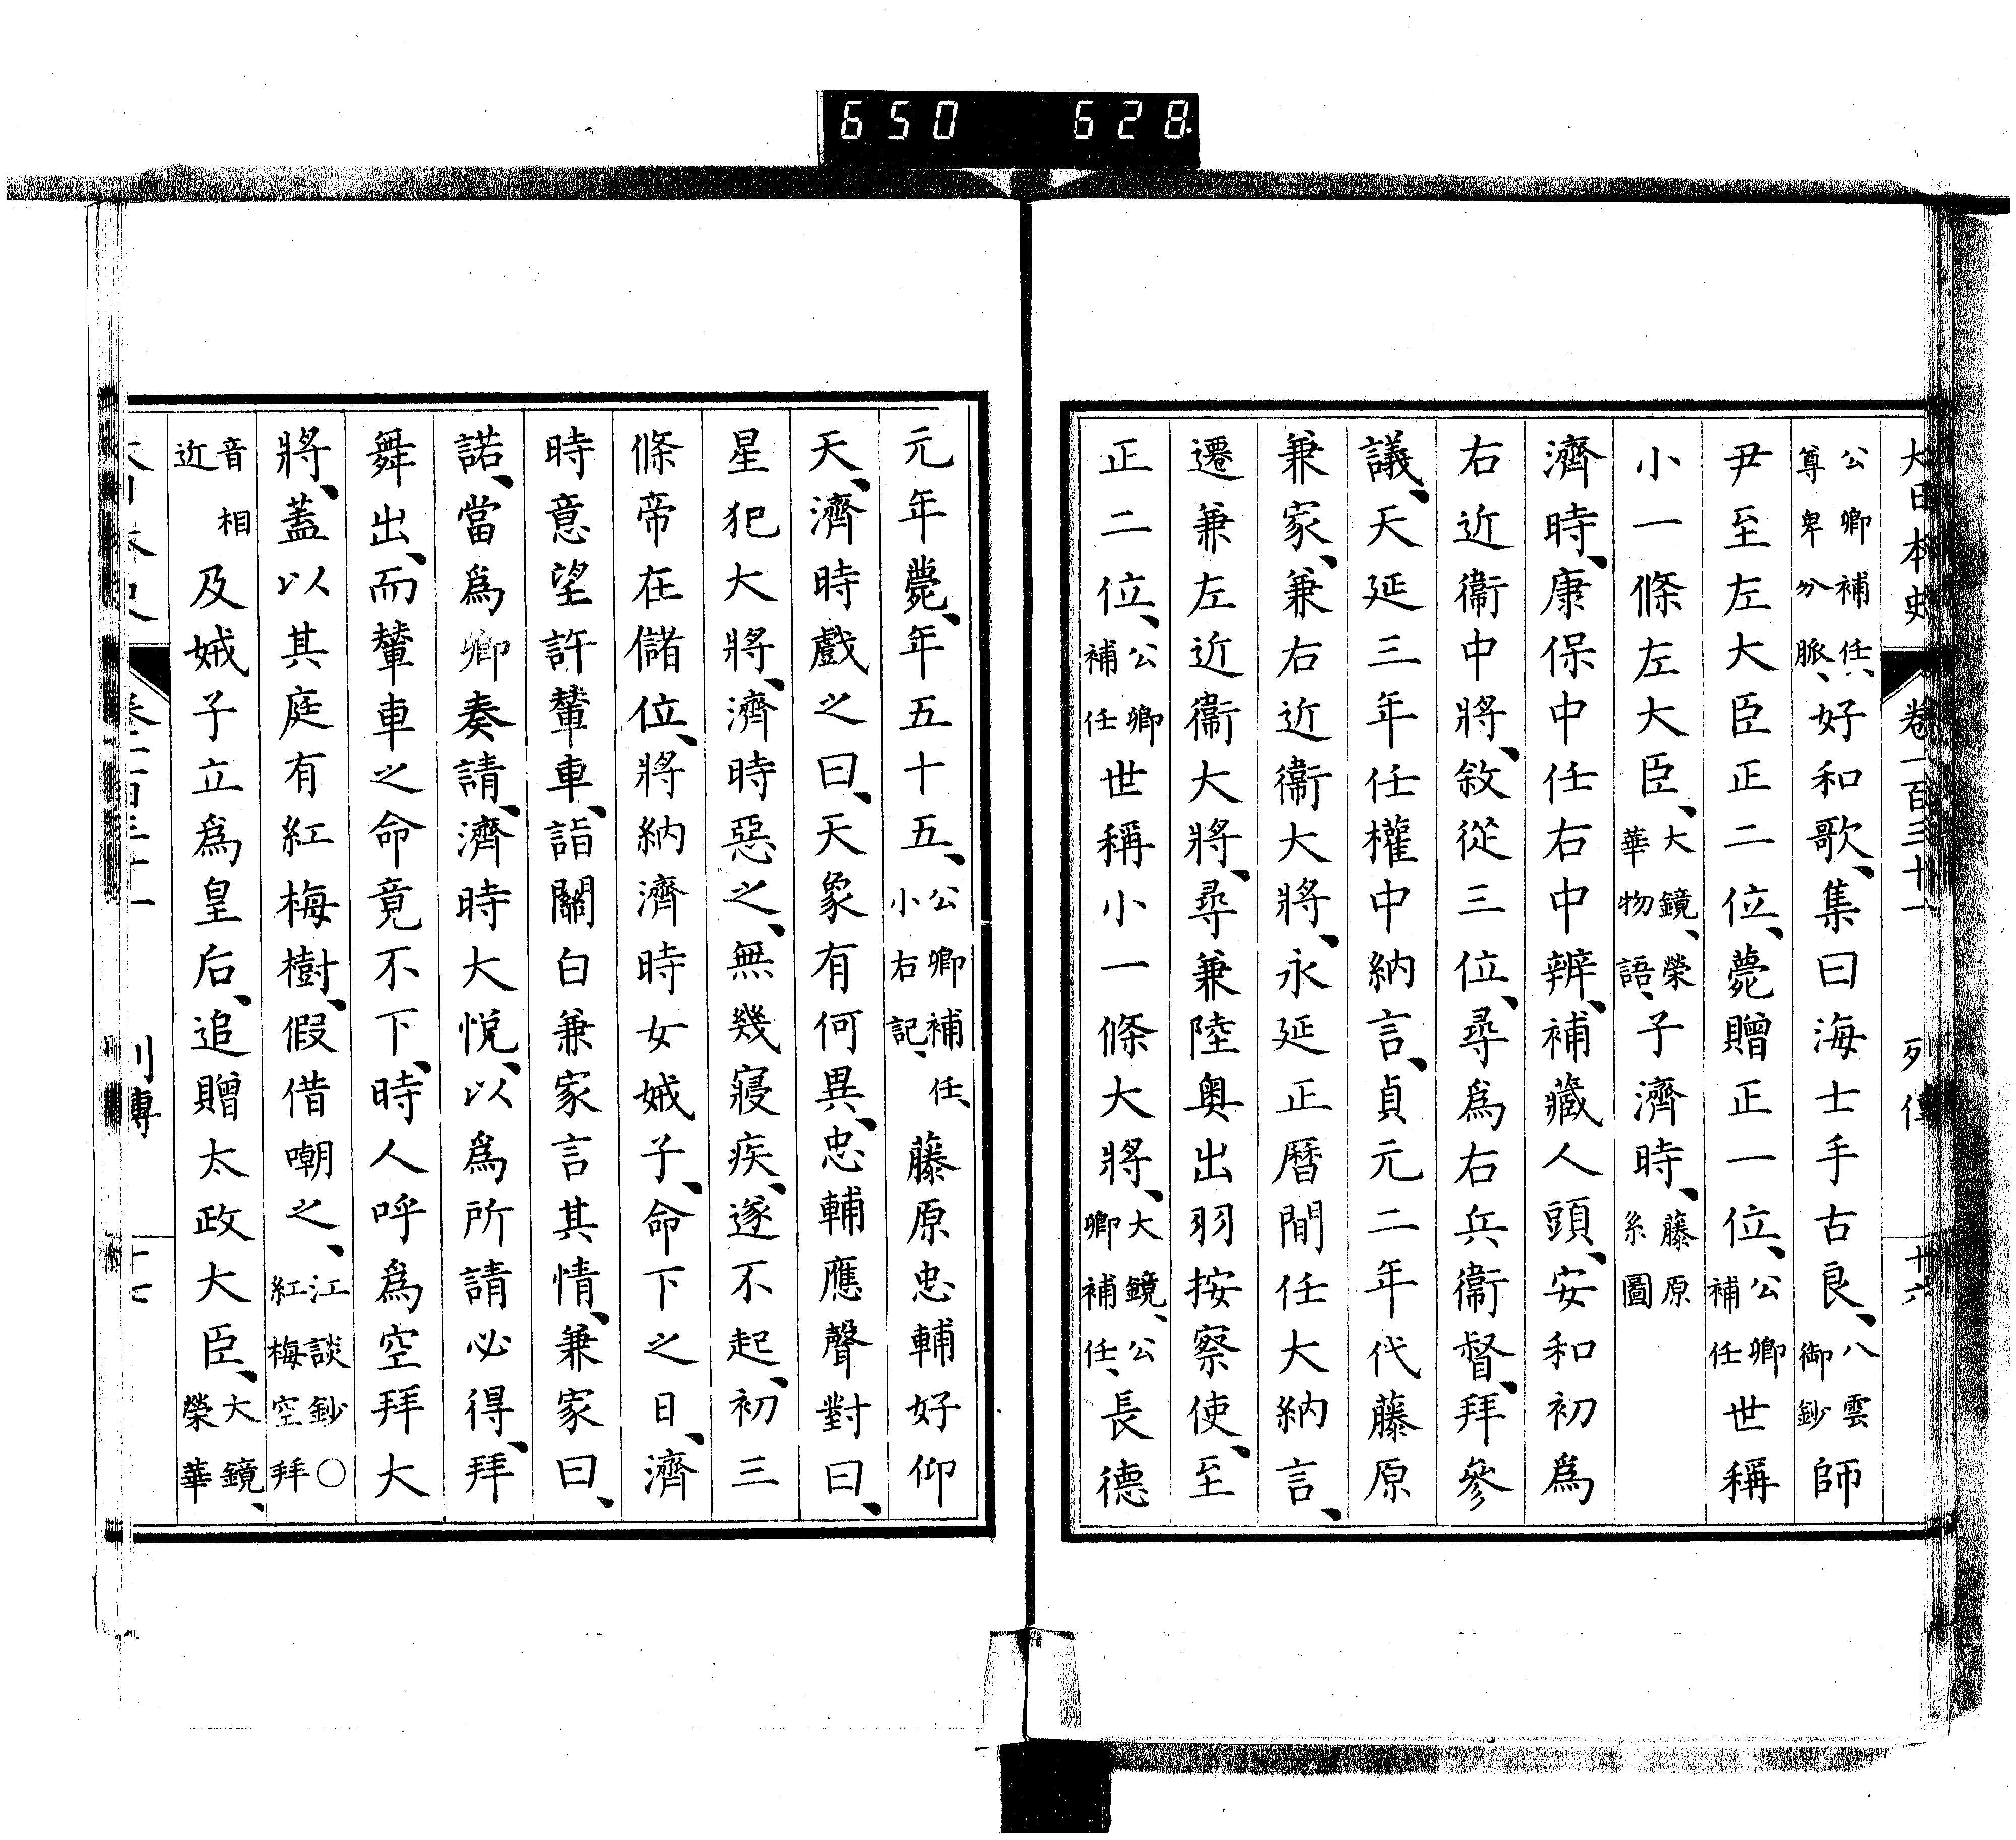 650 628
大日本史 卷一百三十一 列傳 十六
公卿補任、尊卑分脈、好和歌、集曰海士手古良、八雲御鈔師
尹至左大臣正二位、薨贈正一位、公卿補任世稱
小一條左大臣、大鏡、榮華物語、子濟時、藤原系圖
濟時、康保中任右中辨、補藏人頭、安和初爲
右近衞中將、敘從三位、尋爲右兵衞督、拜參
議、天延三年任權中納言、貞元二年代藤原
兼家、兼右近衞大將、永延正曆間任大納言、
遷兼左近衞大將、尋兼陸奥出羽按察使、至
正二位、公卿補任世稱小一條大將、大鏡、公卿補任、長德
元年薨、年五十五、公卿補任、小右記、藤原忠輔好仰
天、濟時戲之曰、天象有何異、忠輔應聲對曰、
星犯大將、濟時惡之、無幾寢疾、遂不起、初三
條帝在儲位、將納濟時女娍子、命下之日、濟
時意望許輦車、詣關白兼家言其情、兼家曰、
諾、當爲卿奏請、濟時大悅、以爲所請必得、拜
舞出、而輦車之命竟不下、時人呼爲空拜大
將、蓋以其庭有紅梅樹、假借嘲之、江談鈔○紅梅空拜
音相近及娍子立爲皇后、追贈太政大臣、大鏡、榮華